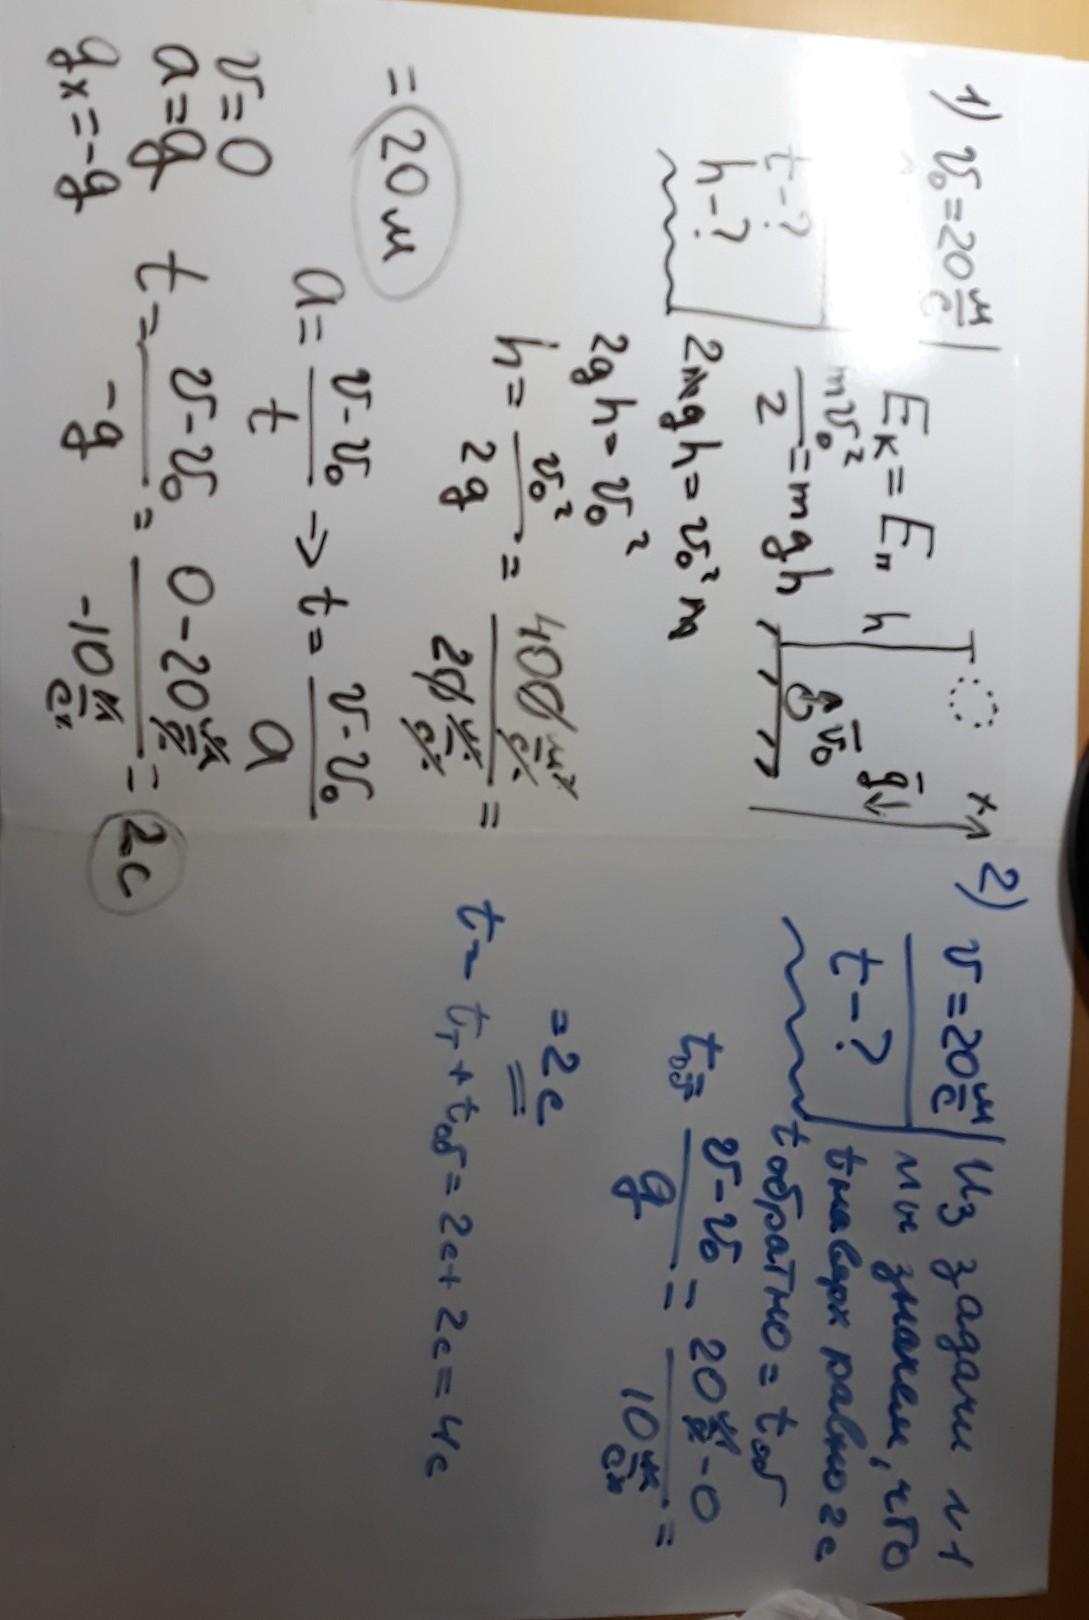 1) v₀=20 м/с
t-?
h-?
Eк = Eп
mv₀²/2 = mgh
2mgh = v₀²m
2gh = v₀²
h = v₀²/2g = 400 м²/с² / 20 м/с² =
= 20 м
h
v̄₀
ḡ
x
v = 0
a = g
gx = -g
a = (v-v₀)/t → t = (v-v₀)/a
t = (v-v₀)/-g = (0-20 м/с)/(-10 м/с²) = 2с
2) v=20 м/с
t-?
Из задачи №1
мы знаем, что
t наверх равно 2с
t обратно = tоб
tоб = (v-v₀)/g = (20 м/с - 0)/(10 м/с²) =
= 2с
t = t₁ + tоб = 2с + 2с = 4с